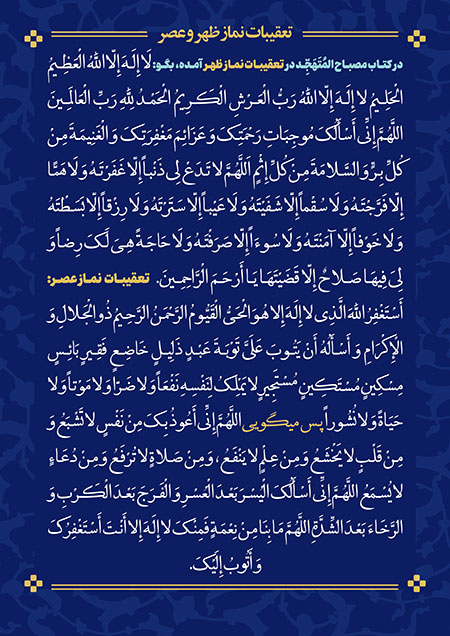 تعقیبات نماز ظهر و عصر
در کتاب مصباح المُتَهَجِّد در تعقیبات نماز ظهر آمده، بگو: لَا إِلَهَ إِلَّا اللهُ الْعَظِیمُ
الْحَلِیمُ لَا إِلَهَ إِلَّا اللهُ رَبُّ الْعَرْشِ الْکَرِیمُ الْحَمْدُ لِلَّهِ رَبِّ الْعَالَمِینَ
اللَّهُمَّ إِنِّی أَسْأَلُکَ مُوجِبَاتِ رَحْمَتِکَ وَ عَزَائِمَ مَغْفِرَتِکَ وَ الْغَنِیمَةَ مِنْ
کُلِّ بِرٍّ وَ السَّلَامَةَ مِنْ کُلِّ إِثْمٍ اللَّهُمَّ لَا تَدَعْ لِی ذَنْباً إِلَّا غَفَرْتَهُ وَ لَا هَمّاً
إِلَّا فَرَّجْتَهُ وَ لَا سُقْماً إِلَّا شَفَیْتَهُ وَ لَا عَیْباً إِلَّا سَتَرْتَهُ وَ لَا رِزْقاً إِلَّا بَسَطْتَهُ
وَ لَا خَوْفاً إِلَّا آمَنْتَهُ وَ لَا سُوءاً إِلَّا صَرَفْتَهُ وَ لَا حَاجَةً هِیَ لَکَ رِضاً وَ
لِیَ فِیهَا صَلَاحٌ إِلَّا قَضَیْتَهَا یَا أَرْحَمَ الرَّاحِمِینَ. تعقیبات نماز عصر:
أَسْتَغْفِرُ اللهَ الَّذِی لَا إِلَهَ إِلَّا هُوَ الْحَیُّ الْقَیُّومُ الرَّحْمَنُ الرَّحِیمُ ذُو الْجَلَالِ وَ
الْإِکْرَامِ وَ أَسْأَلُهُ أَنْ یَتُوبَ عَلَیَّ تَوْبَةَ عَبْدٍ ذَلِیلٍ خَاضِعٍ فَقِیرٍ بَائِسٍ
مِسْکِینٍ مُسْتَکِینٍ مُسْتَجِیرٍ لَا یَمْلِکُ لِنَفْسِهِ نَفْعاً وَ لَا ضَرّاً وَ لَا مَوْتاً وَ لَا
حَیَاةً وَ لَا نُشُوراً پس میگویی اللَّهُمَّ إِنِّی أَعُوذُ بِکَ مِنْ نَفْسٍ لَا تَشْبَعُ وَ
مِنْ قَلْبٍ لَا یَخْشَعُ وَ مِنْ عِلْمٍ لَا یَنْفَعُ، وَ مِنْ صَلَاةٍ لَا تُرْفَعُ وَ مِنْ دُعَاءٍ
لَا یُسْمَعُ اللَّهُمَّ إِنِّی أَسْأَلُکَ الْیُسْرَ بَعْدَ الْعُسْرِ وَ الْفَرَجَ بَعْدَ الْکَرْبِ وَ
الرَّخَاءَ بَعْدَ الشِّدَّةِ اللَّهُمَّ مَا بِنَا مِنْ نِعْمَةٍ فَمِنْکَ لَا إِلَهَ إِلَّا أَنْتَ أَسْتَغْفِرُکَ
وَ أَتُوبُ إِلَیْکَ.